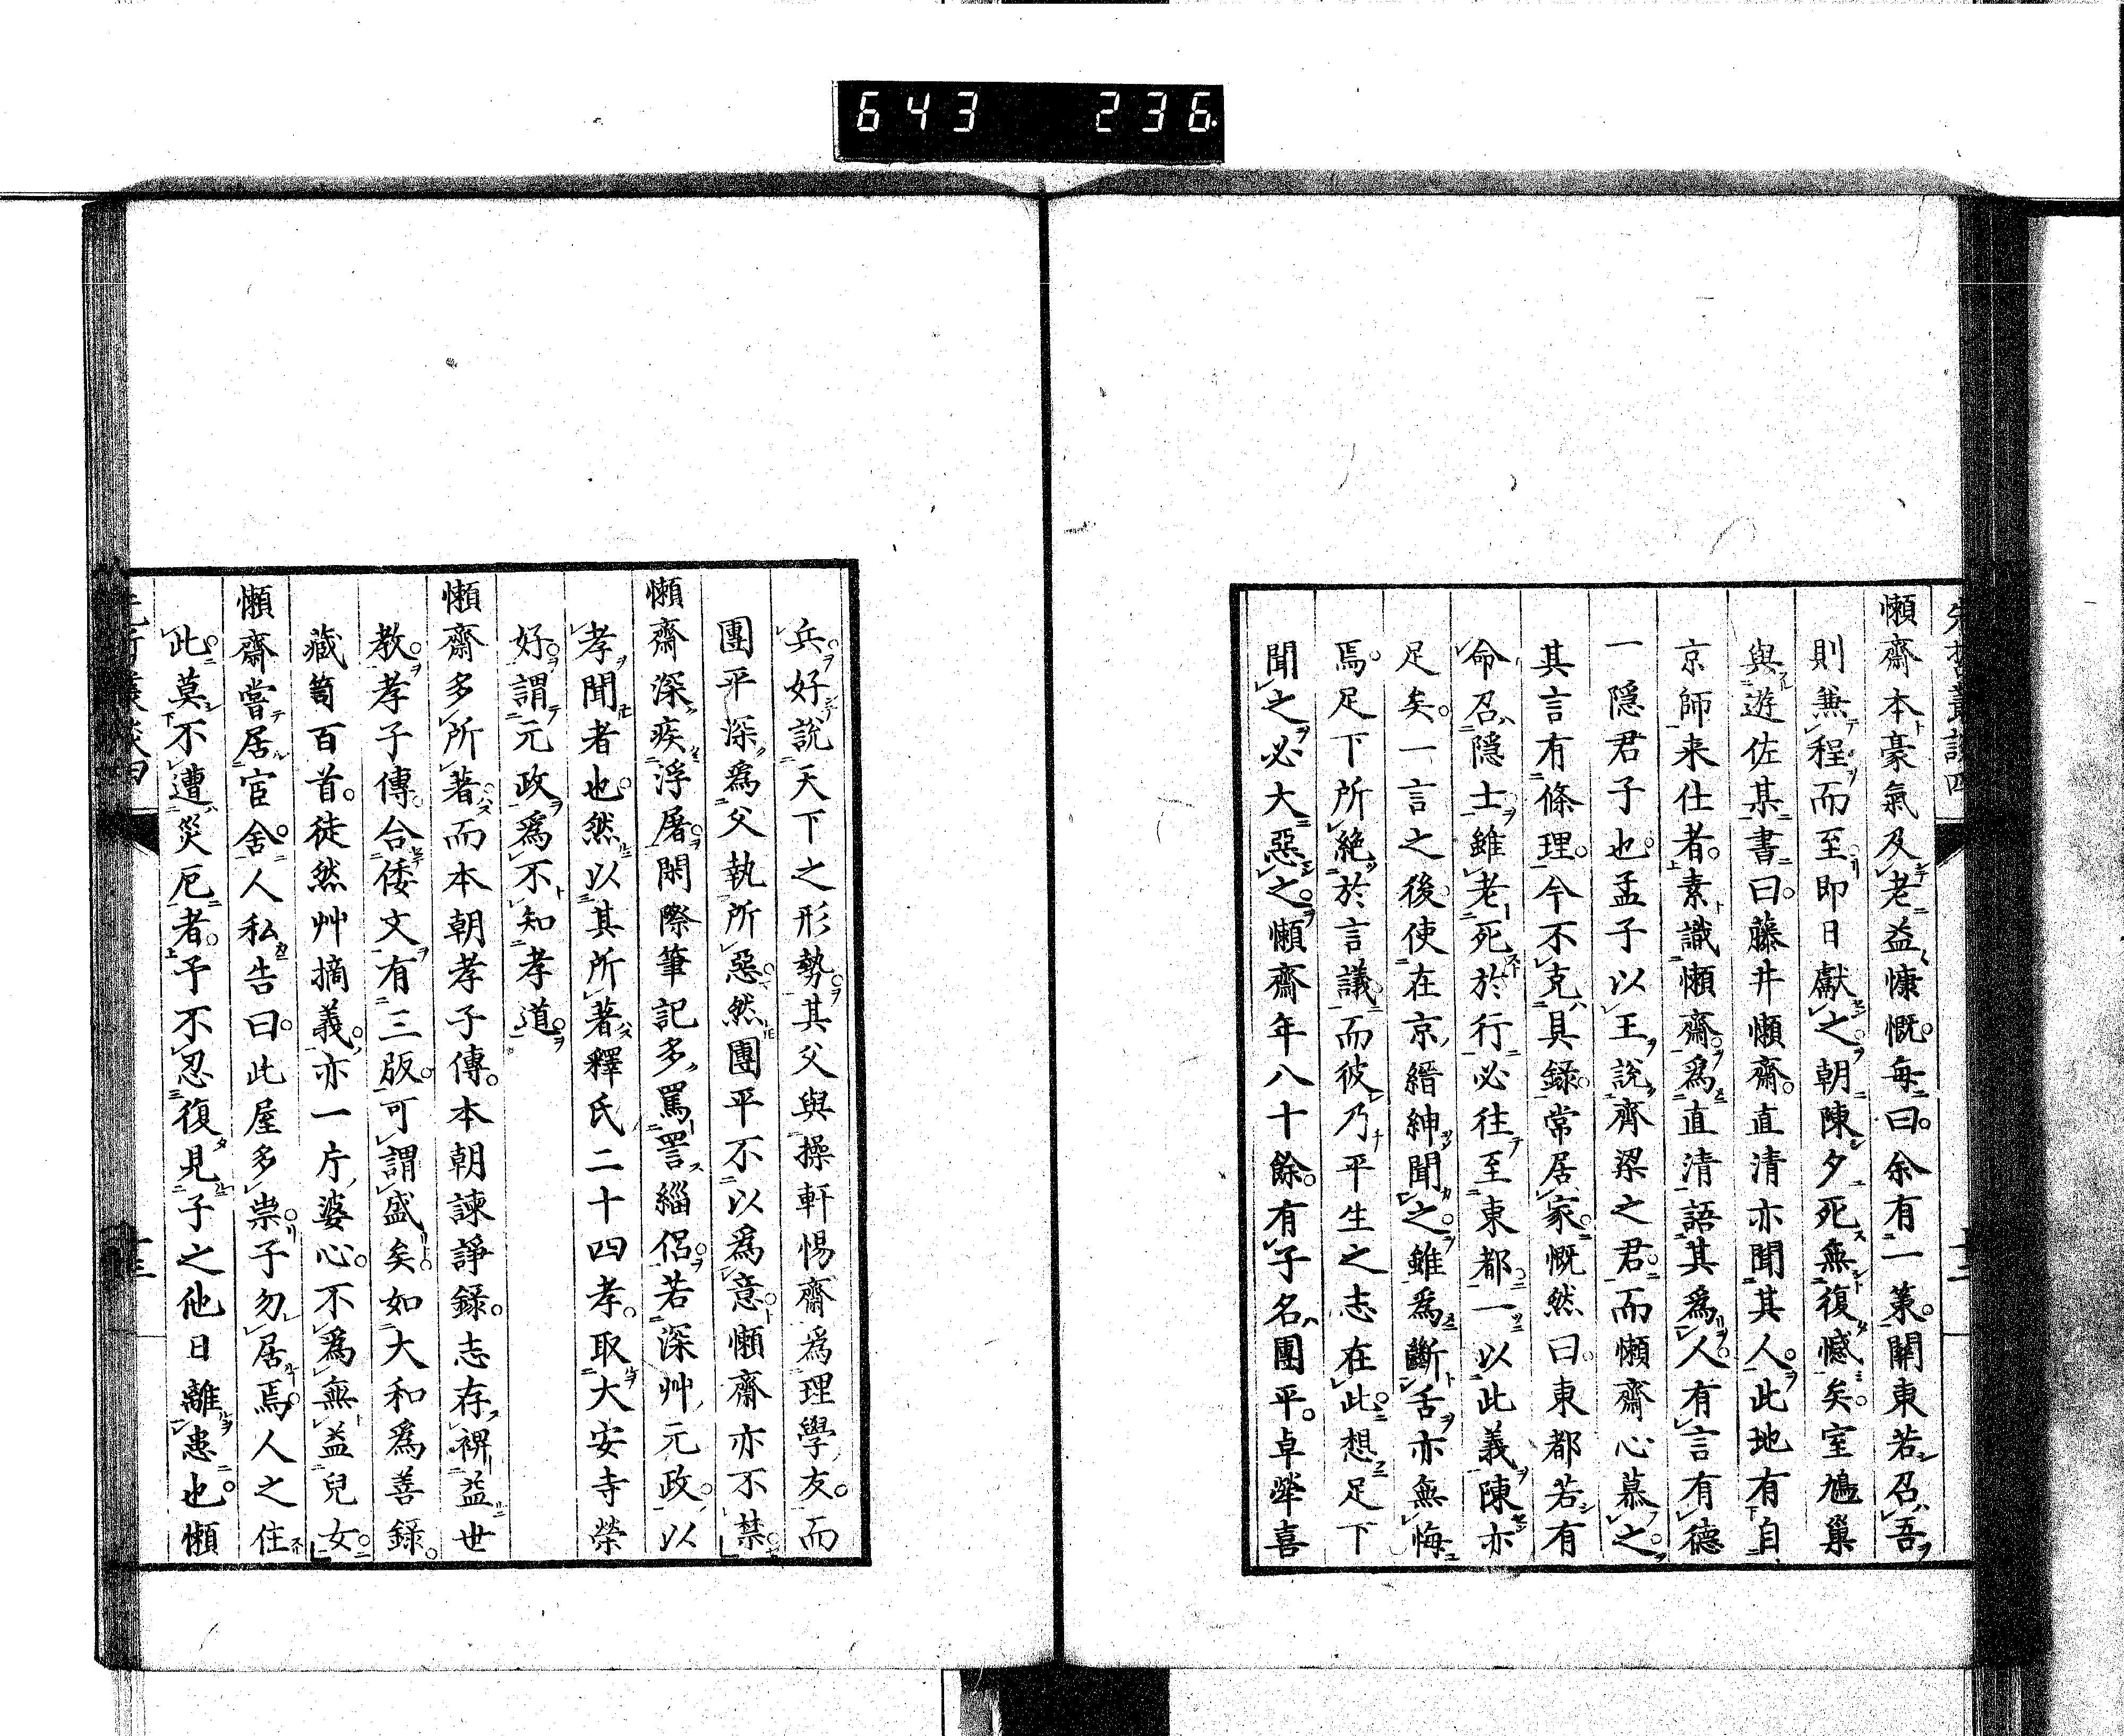 643 236
先哲叢談四 十二
懶齋本豪氣及老益慷慨。毎曰。余有一策。關東若召吾
則兼程而至即日獻之。朝陳夕死無復憾矣。室鳩巢
與遊佐某書曰。藤井懶齋。直清亦聞其人。此地有自
京師来仕者。素識懶齋。爲直清語其爲人。有言有德
一隱君子也。孟子以王說齊梁之君。而懶齋心慕之。
其言有條理。今不克具録。常居家。慨然曰。東都若有
命召隱士。雖老死於行必往至東都。一以此義陳亦
足矣。一言之後。使在京縉紳聞之。雖爲斷舌亦無悔
焉。足下所絶於言議。而彼乃平生之志在此。想足下
聞之必大惡之。懶齋年八十餘。有子名團平。卓犖喜
兵。好說天下之形勢。其父與操軒惕齋爲理學友。而
團平深爲父執所惡。然團平不以爲意。懶齋亦不禁。
懶齋深疾浮屠。閑際筆記多罵詈緇侶。若深艸元政。以
孝聞者也。然以其所著釋氏二十四孝。取大安寺榮
好。謂元政爲不知孝道。
懶齋多所著。而本朝孝子傳。本朝諫諍録。志存裨益世
教。孝子傳。合倭文有三版。可謂盛矣。如大和爲善録。
藏笥百首。徒然艸摘義。亦一片婆心。不爲無益兒女。
懶齋嘗居官舍。人私告曰。此屋多祟。子勿居焉。人之住
此。莫不遭災厄者。予不忍復見子之他日離患也。懶
先哲叢談四 十三